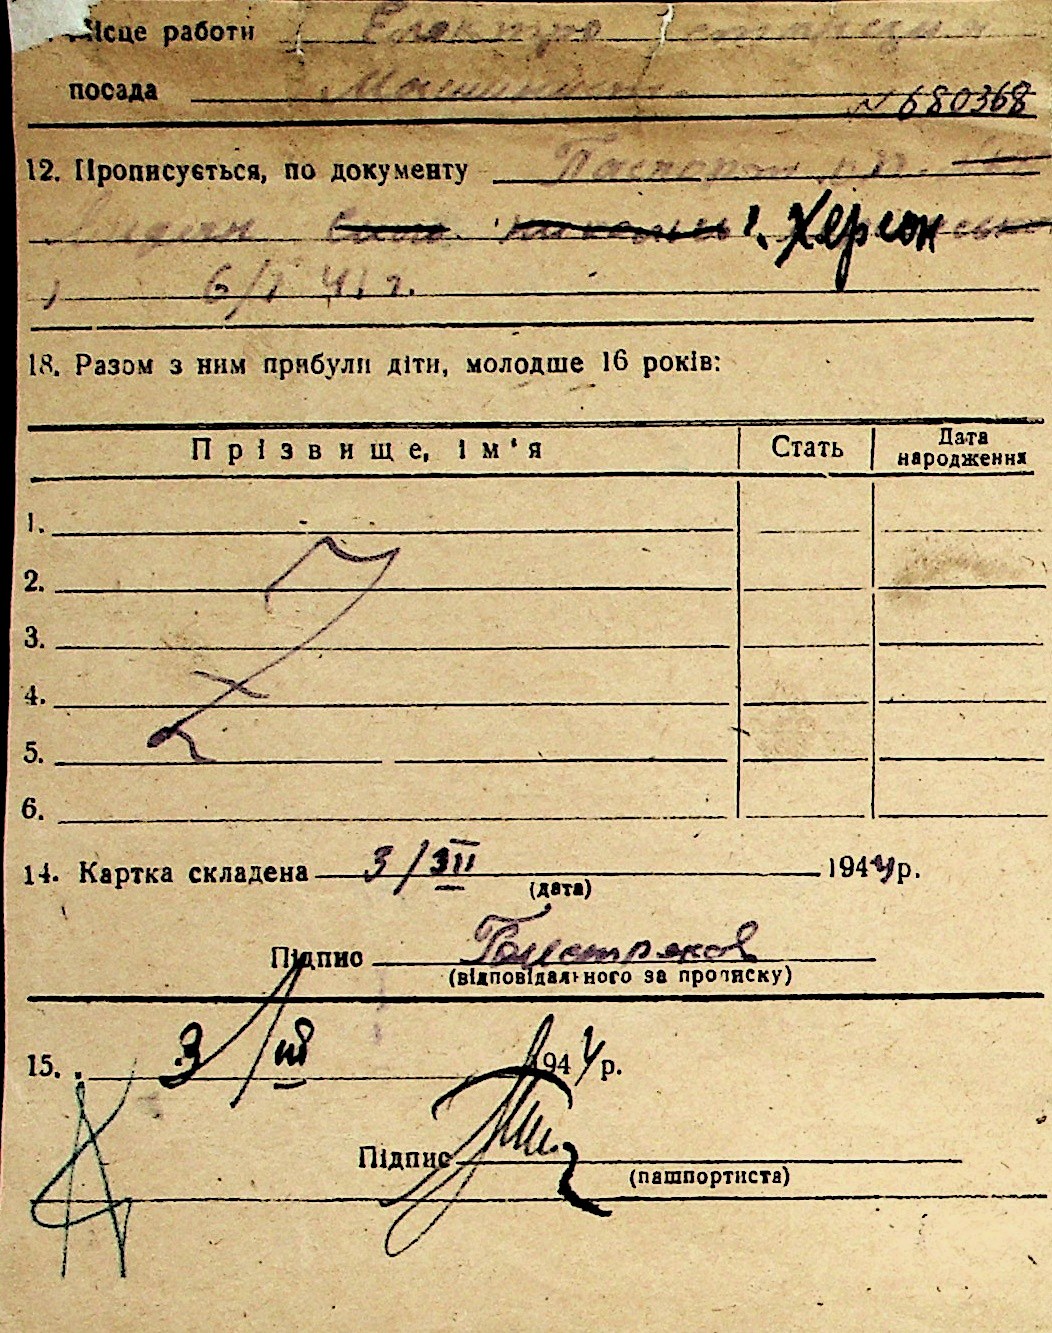 Місце работи Електро станция
посада Машинист.
N 680368
12. Прописується, по документу Паспорт
г. Херсон
6/I 41 г.
18. Разом з ним прибули діти, молодше 16 років:
Прізвище, ім'я Стать Дата народження
1.
2.
3.
4.
5.
6.
14. Картка складена 3/III 1944 р.
(дата)
Підпис
(відповідального за прописку)
15. 3/III 1944 р.
Підпис
(пашпортиста)